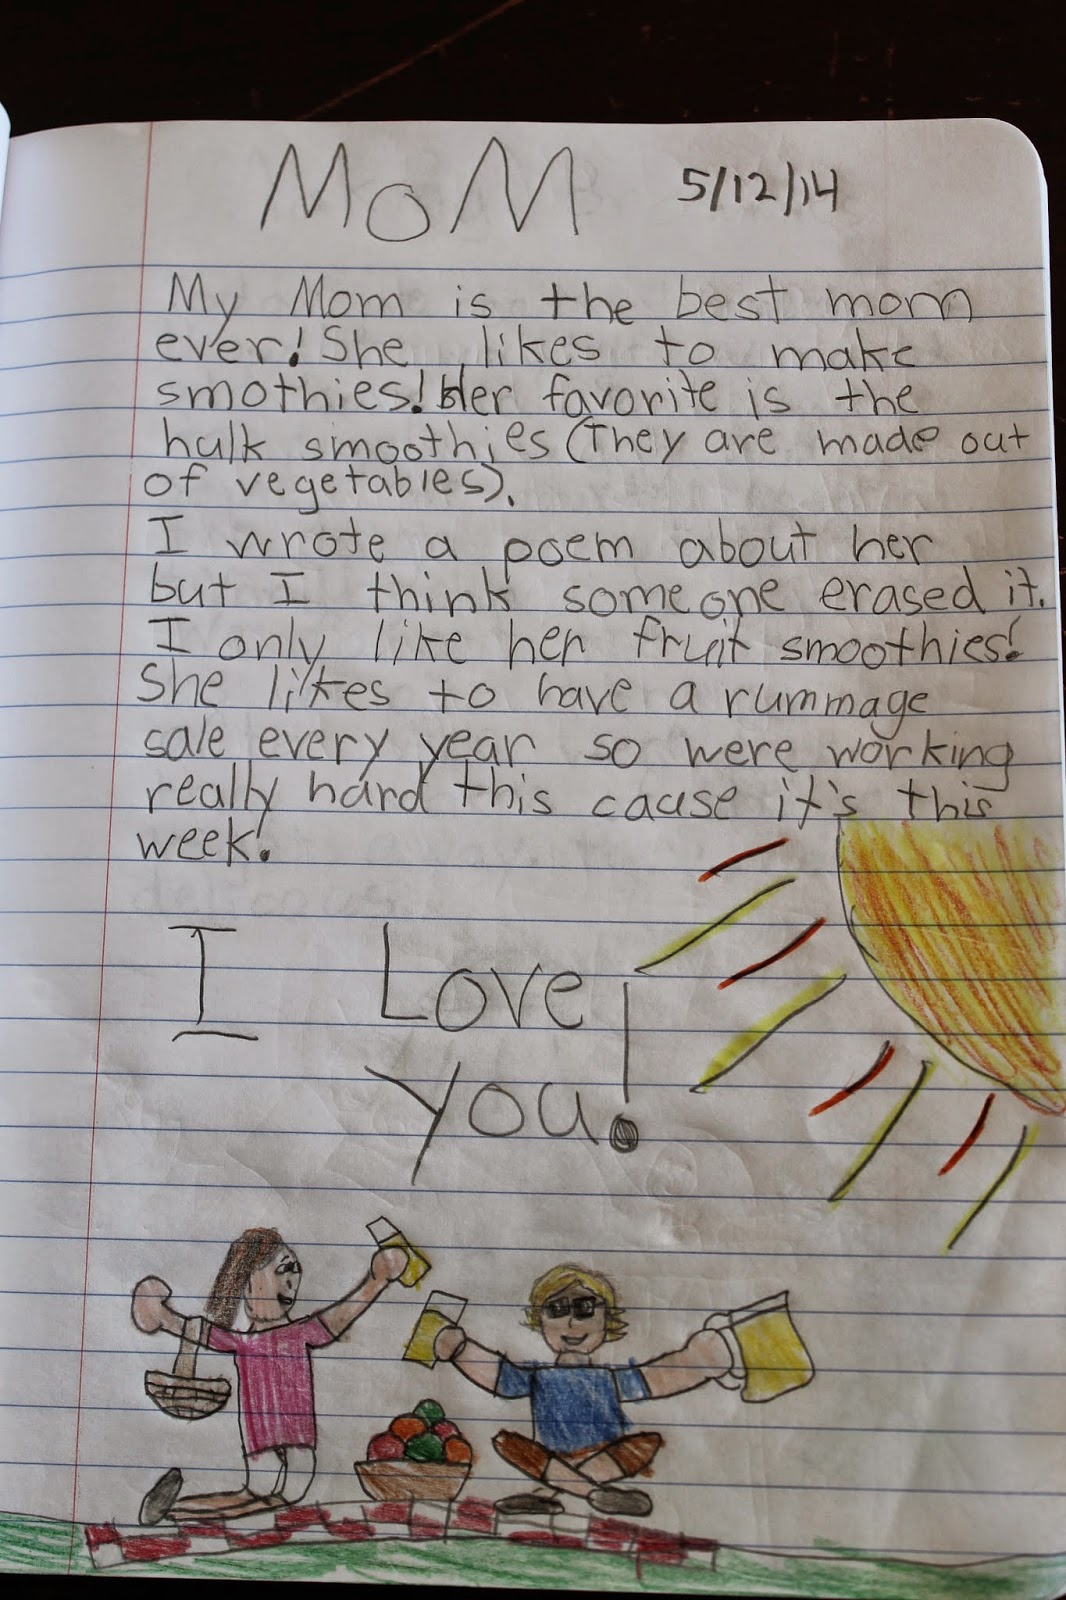 MoM 5/12/14
My Mom is the best mom
ever! She likes to make
smothies! Her favorite is the
hulk smoothies (They are made out
of vegetables).
I wrote a poem about her
but I think someone erased it.
I only like her fruit smoothies!
She likes to have a rummage
sale every year so were working
really hard this cause it's this
week!
I Love
you!